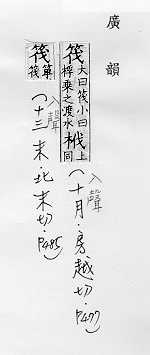 廣韻
筏大曰筏小曰桴乘之渡水栰上同
入聲
(十月·房越切·P477)
筏箄筏
入聲
(十三末·北末切·P485)